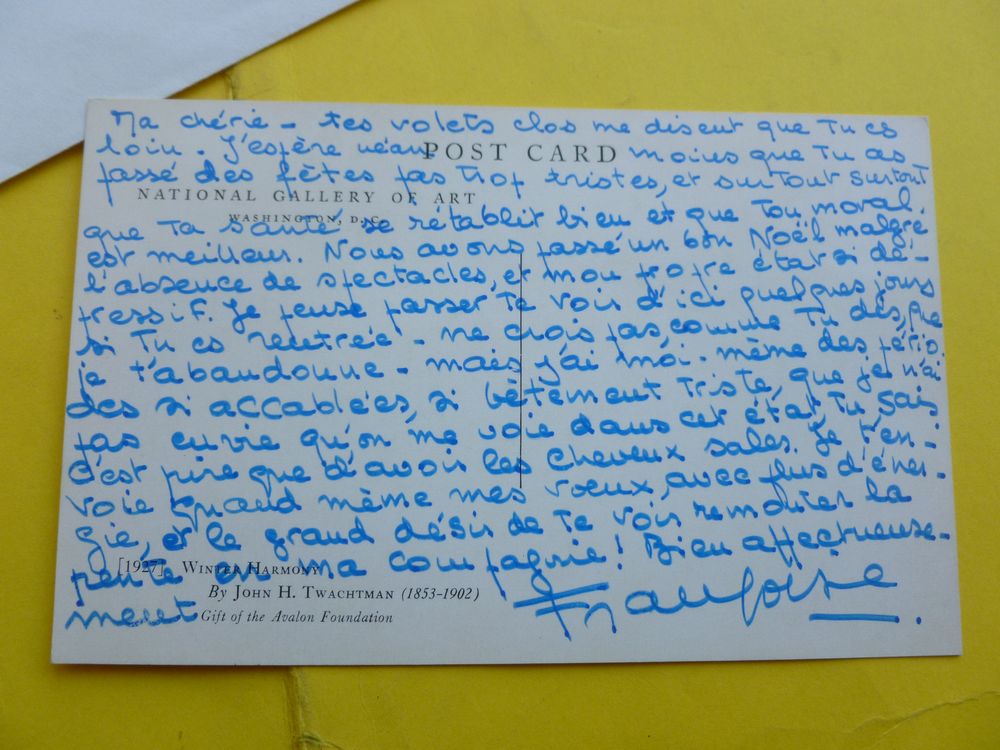 Ma chérie - tes volets clos me disent que Tu es
loin. J'espère néan
POST CARD
moins que Tu as
passé des fêtes pas Trop tristes, et surTout surtout
NATIONAL GALLERY OF ART
WASHINGTON, D.C.
que Ta santé se rétablit bien et que Ton moral
est meilleur. Nous avons passé un bon Noël malgré
l'absence de spectacles, et mon propre état si dé-
pressif. Je pense passer Te voir d'ici quelques jours
si Tu es rentrée - ne crois pas, comme Tu dis, que
je t'abandonne - mais j'ai moi-même des pério
des si accablées, si bêtement Triste, que je n'ai
pas envie qu'on me voie dans cet état, Tu sais
c'est pire que d'avoir les cheveux sales. Je t'en-
voie quand même mes vœux, avec plus d'éner-
gie, et le grand désir de Te voir remonter la
pente en ma compagnie! Bien affectueuse-
ment
[1927] WINTER HARMONY
By JOHN H. TWACHTMAN (1853-1902)
Gift of the Avalon Foundation
Françoise.